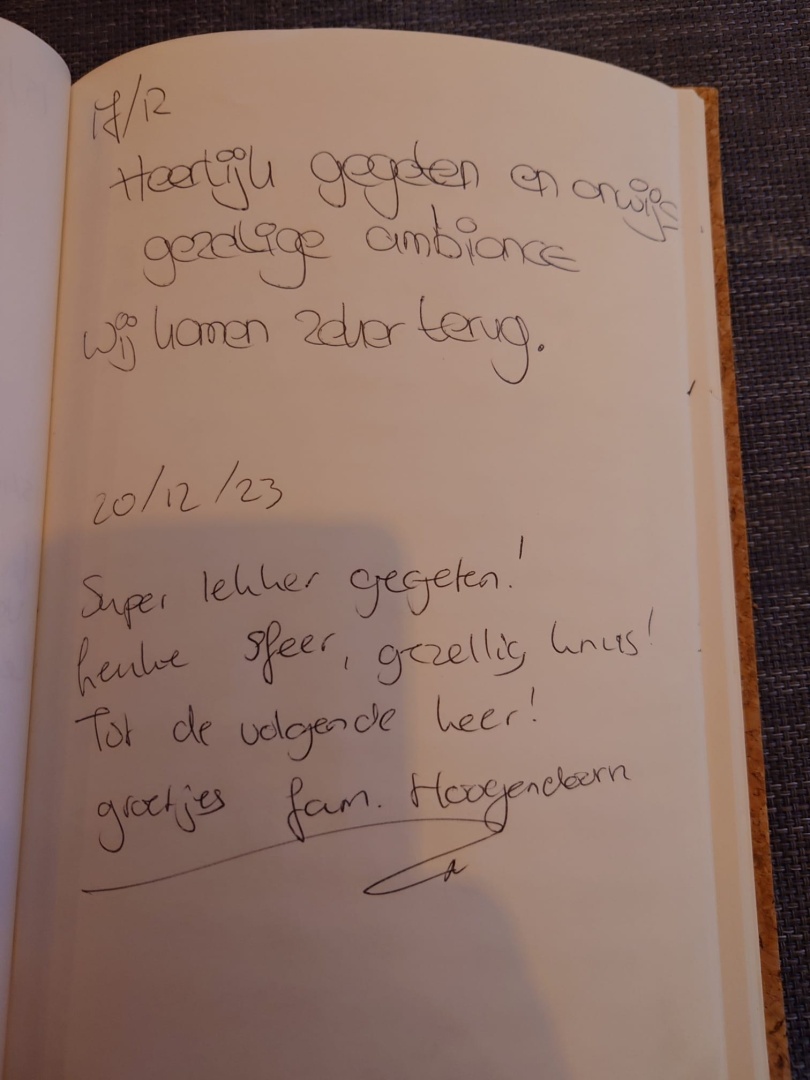 17/12
Heerlijk gegeten en onwijs
gezellige ambiance
wij komen zeker terug.
20/12/23
Super lekker gegeten!
Leuke sfeer, gezellig knus!
Tot de volgende keer!
groetjes fam. Hoogendoorn